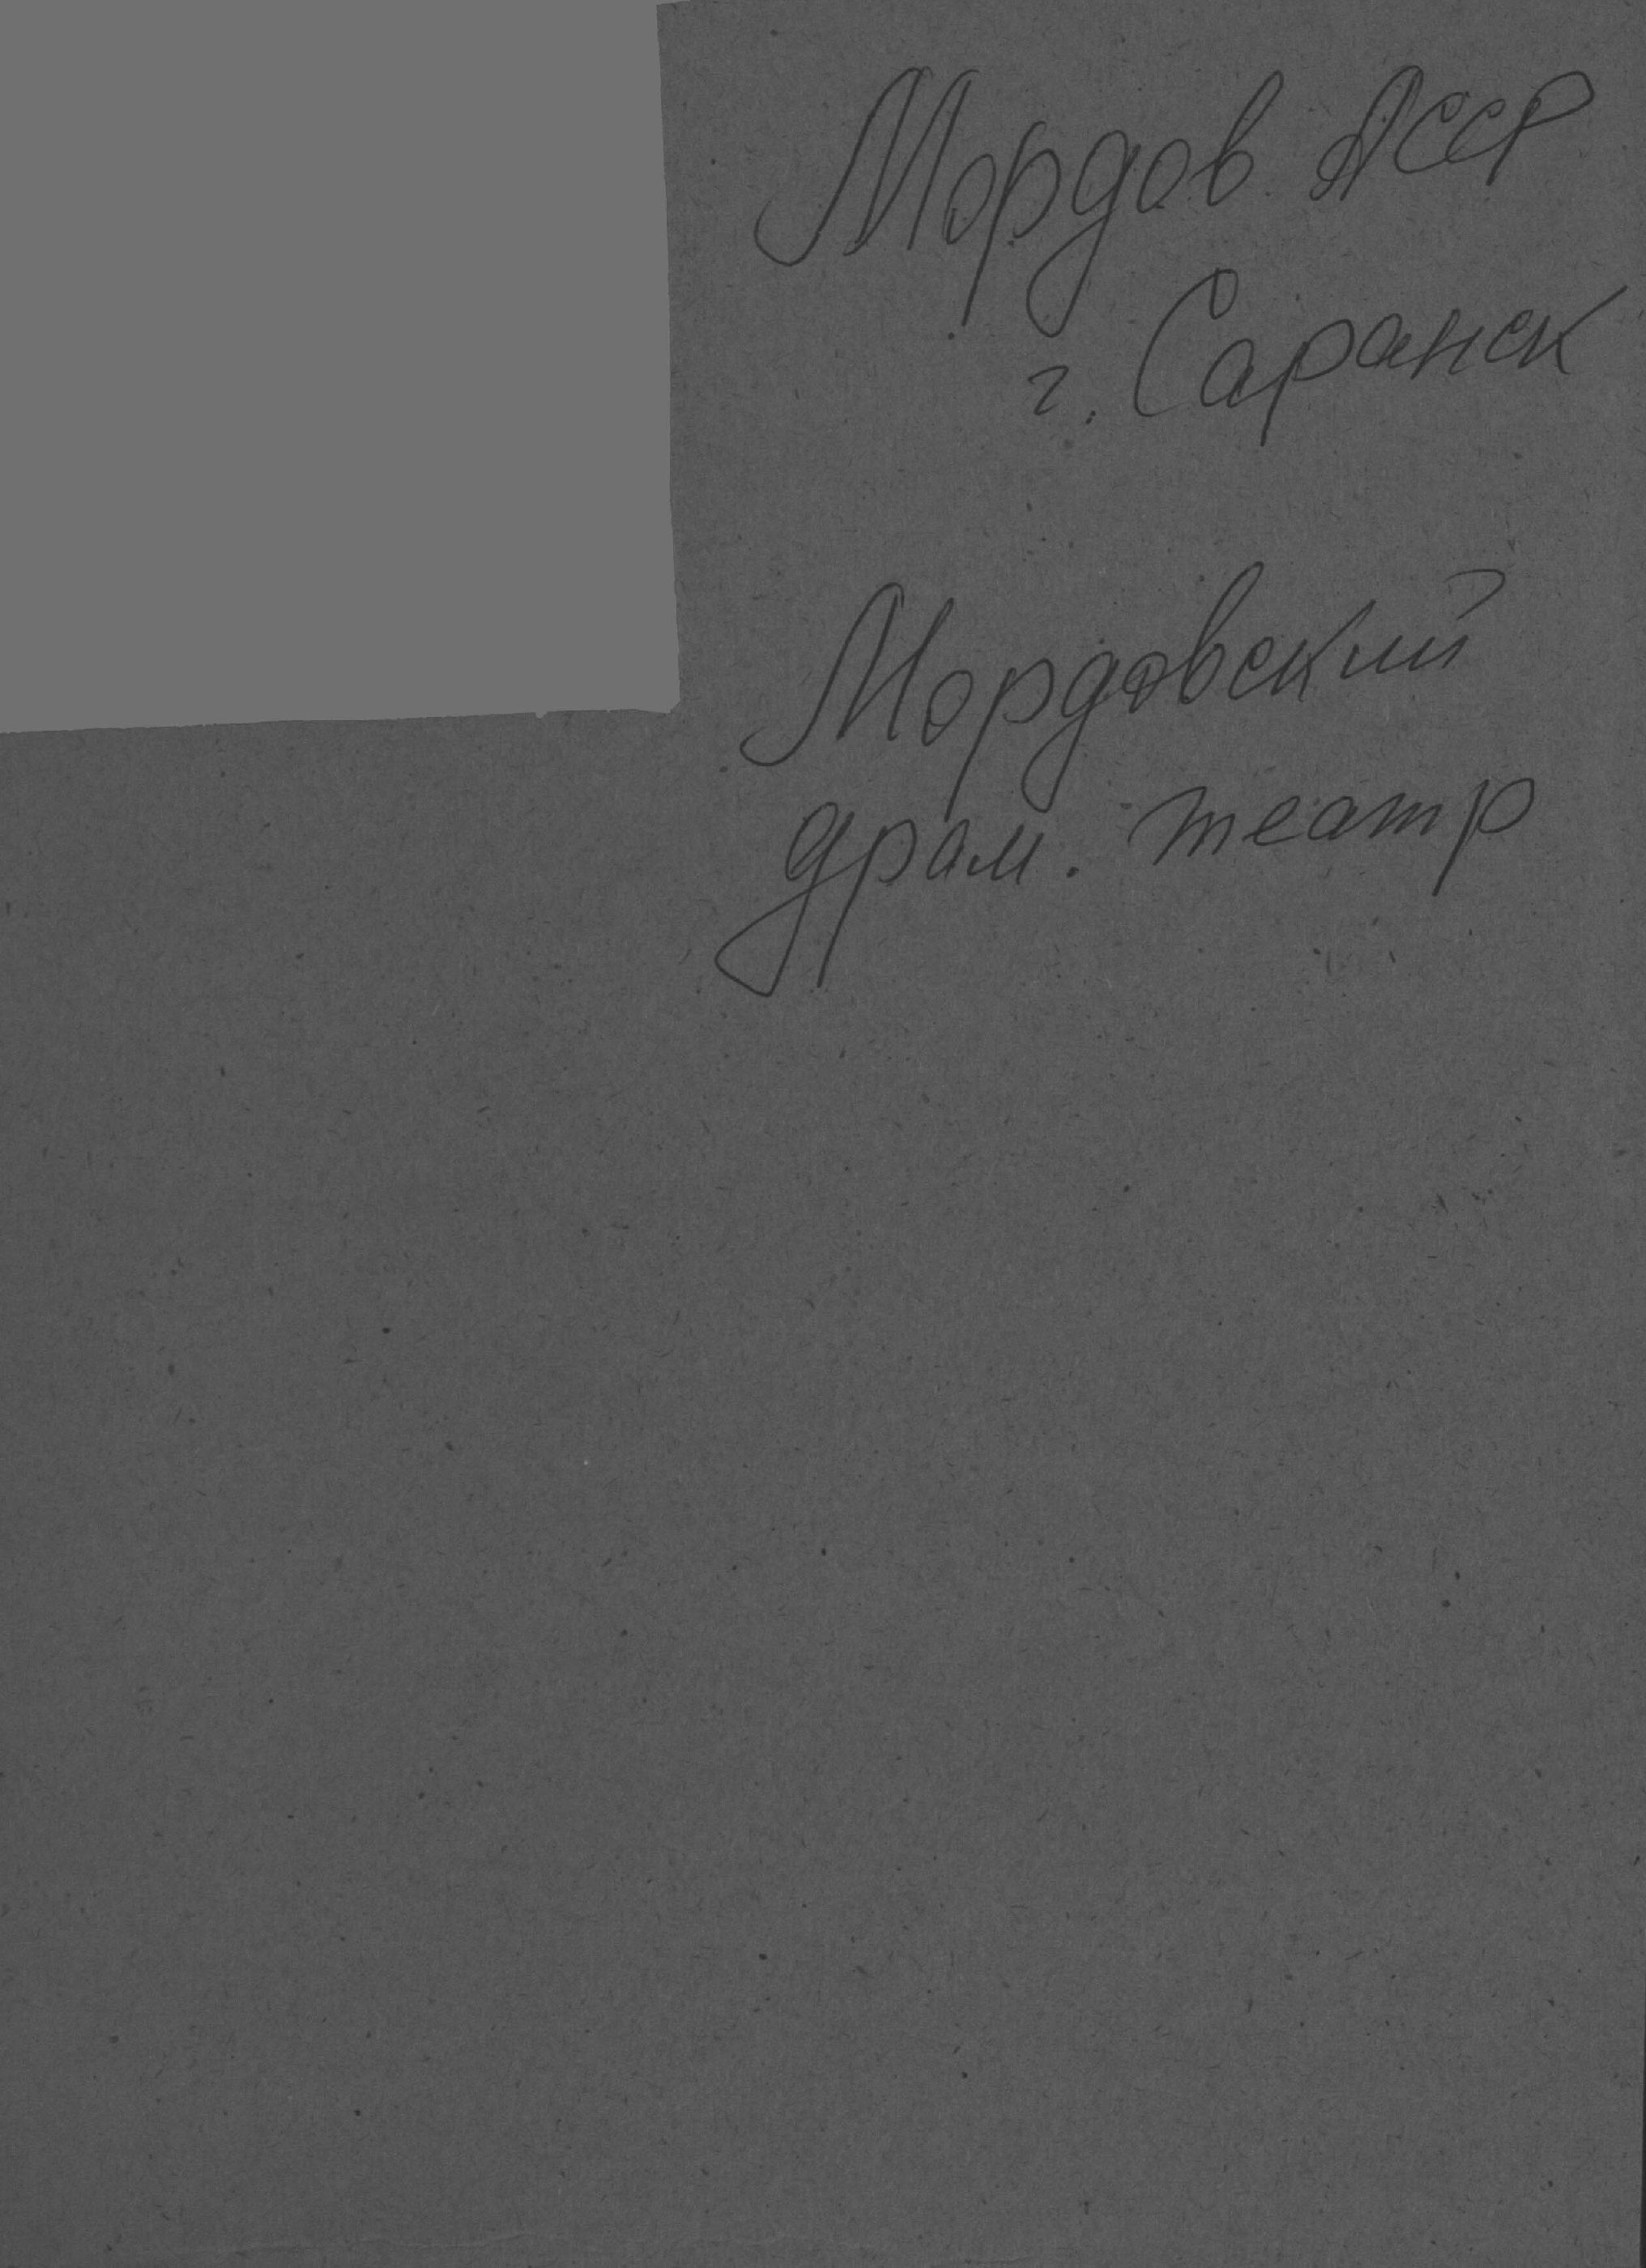 Мордов. АССР
г. Саранск
Мордовский
драм. театр